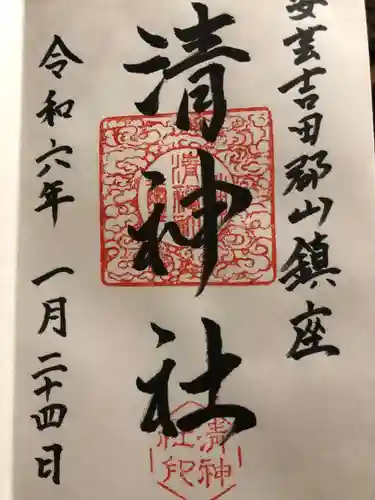 安芸吉田郡山鎮座
清神社
令和六年 一月二十四日
清神社印